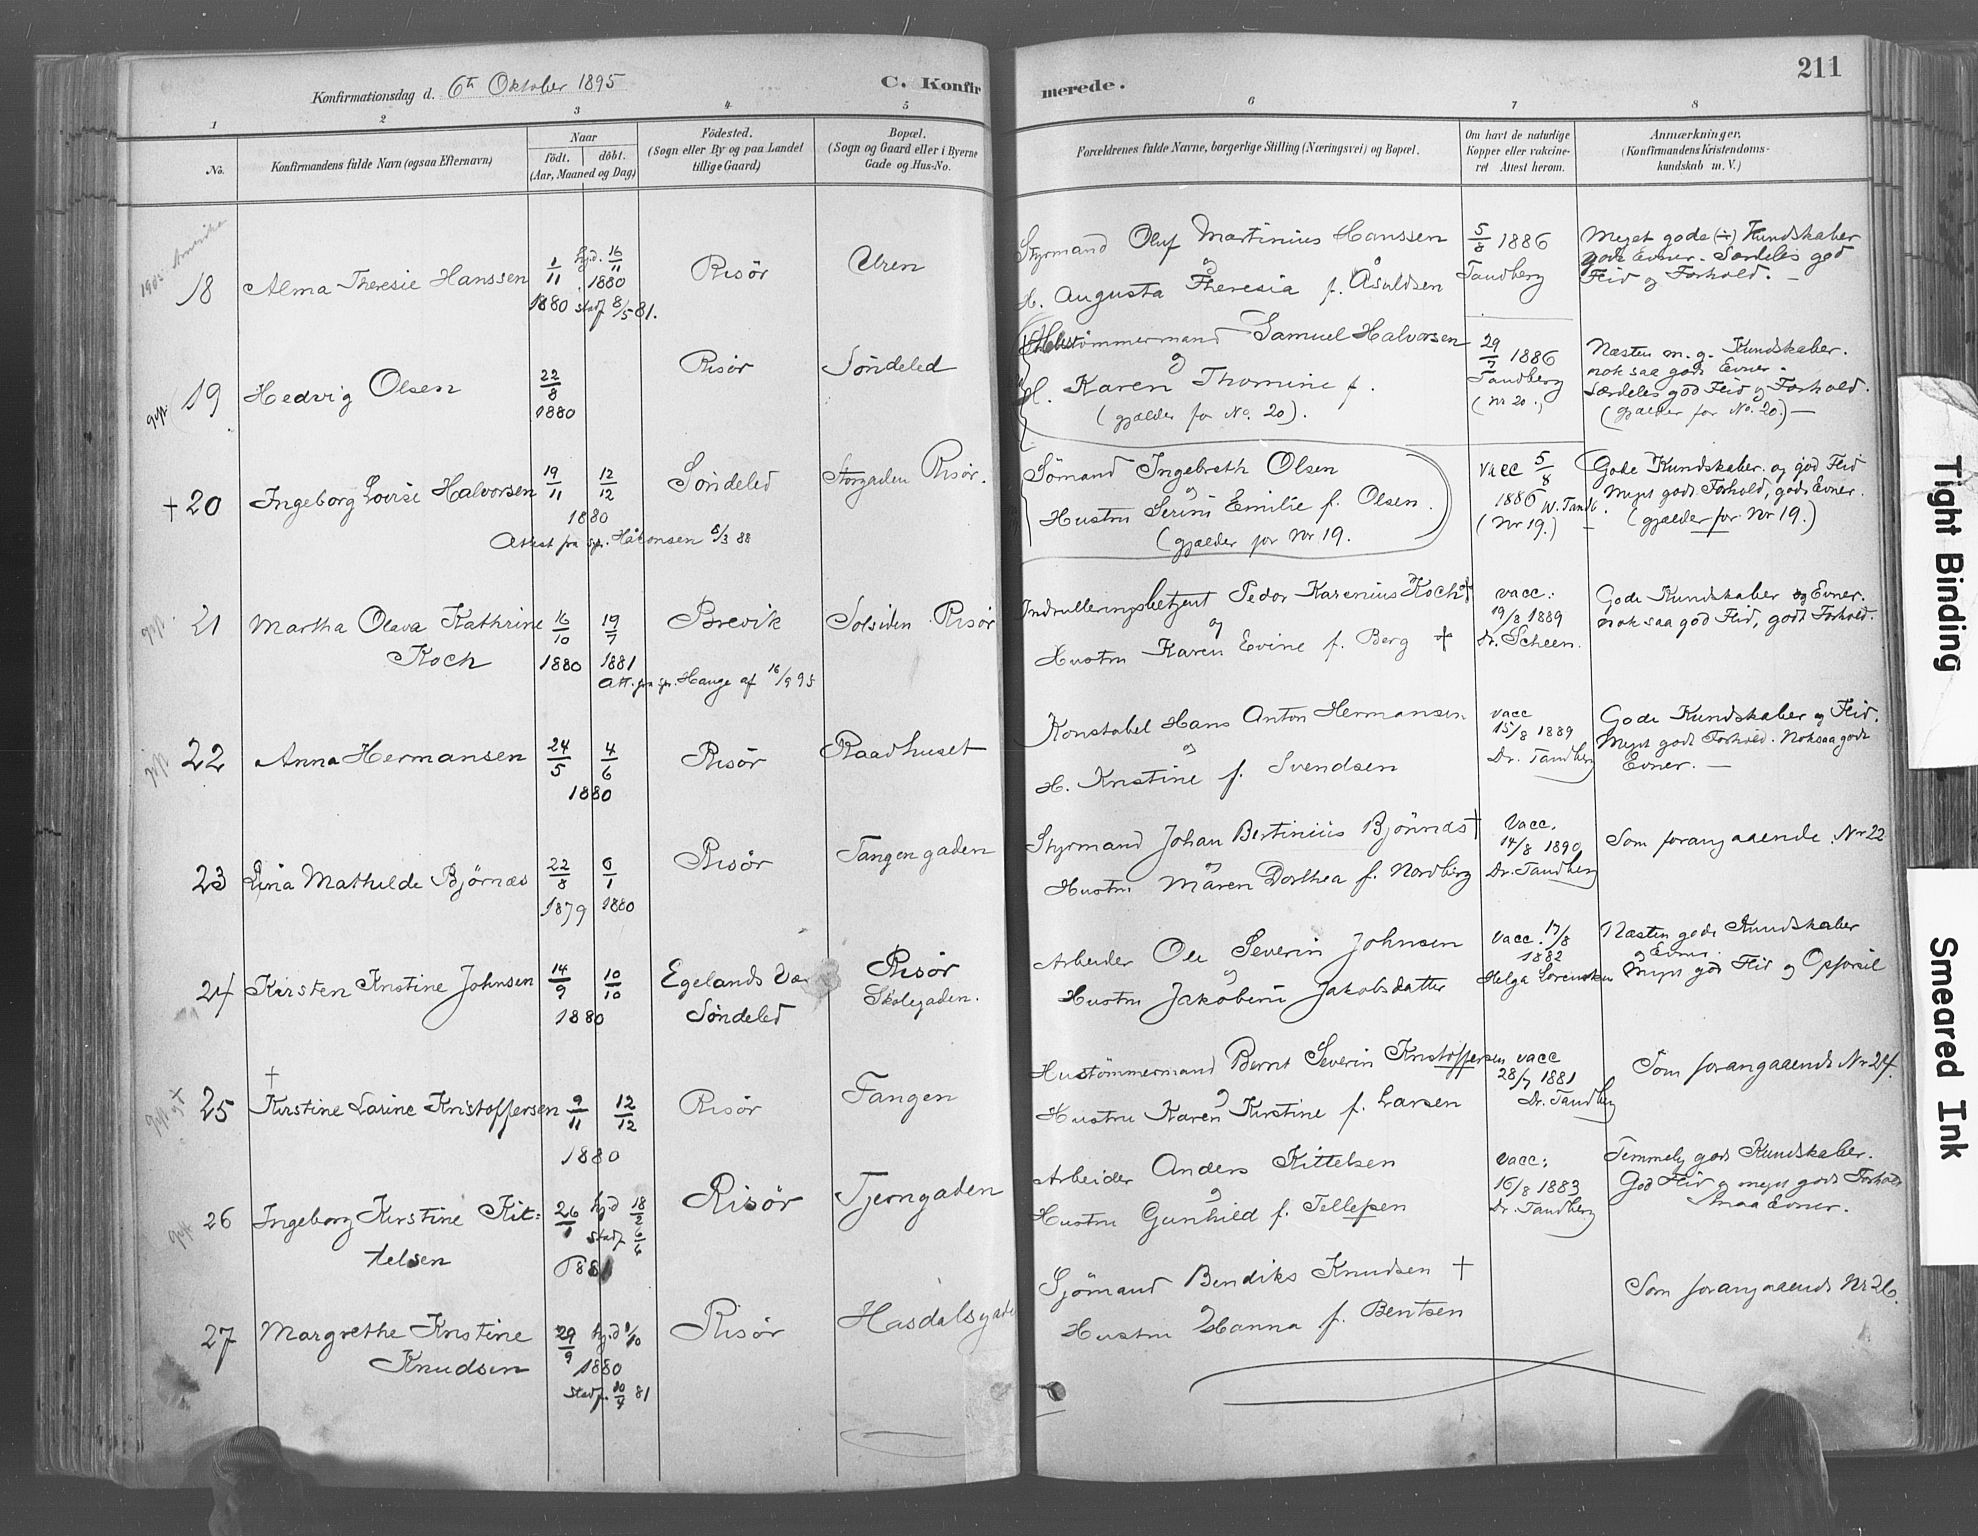 211
Konfirmationsdag d. 6te Oktober 1895
C. Konfirmerede.
1 2 3 4 5 6 7 8
No.
Konfirmandens fulde Navn (ogsaa Efternavn)
Naar
födt. döbt.
(Aar, Maaned og Dag)
Födested.
(Sogn eller By og paa Landet
tillige Gaard)
Bopæl.
(Sogn og Gaard eller i Byerne
Gade og Hus-No.
Forældrenes fulde Navne, borgerlige Stilling (Næringsvei) og Bopæl.
Om havt de naturlige
Kopper eller vakcine-
ret Attest herom.
Anmærkninger,
(Konfirmandens Kristendoms-
kundskab m. V.)
1905 Amerika
18 Alma Theresie Hanssen
1/11 1880
hjd. 16/11 1880
stadf 8/5 81.
Risör
Uren
Styrmand Oluf Martinius Hanssen
og
H. Augusta Theresia f. Åsuldsen
5/8 1886
Tandberg
Meget gode (÷) Kundskaber
gode Evner. Særdeles god
Flid og Forhold. —
gift
19 Hedvig Olsen
22/8
1880
Risör
Söndeled
tömmermand Samuel Halvorsen
og
H. Karen Thomine f.
(gjælder for No. 20).
29/7 1886
Tandberg
(Nr 20.)
Næsten m. g. Kundskaber.
nok saa gode Evner.
Særdeles god Flid og Forhold.
(gjælder for No. 20.) —
+ 20 Ingeborg Lovise Halvorsen
19/11 12/12
1880
Attest fra spr. Håkonsen 6/3 88
Söndeled
Storgaden Risör.
Sömand Ingebreth Olsen
og
Hustru Serine Emilie f. Olsen.
(gjælder for Nr 19.
vacc 5/8
1886 W. Tandb.
(Nr 19.)
Gode Kundskaber og god Flid
Meget godt Forhold, gode Evner.
(gjælder for Nr 19.)
gift.
21 Martha Olava Kathrine
Koch
16/10 19/7
1880 1881
Att. fra spr. Hauge af 16/9 95
Brevik
Solsiden Risör
Indrulleringsbetjent Pedor Karenius Koch †
og
Hustru Karen Evine f. Berg †
vacc:
19/8 1889
Dr. Scheen.
Gode Kundskaber og Evner.
nok saa god Flid, godt Forhold.
gift
22 Anna Hermansen
24/5 4/6
1880
Risör
Raadhuset
Konstabel Hans Anton Hermansen
og
H. Kristine f. Svendsen
vacc
15/8 1889
Dr. Tandberg
Gode Kundskaber og Flid.
Meget godt Forhold. Noksaa gode
Evner. —
23 Lina Mathilde Björnæs
22/8 6/1
1879 1880
Risör
Tangengaden
Styrmand Johan Bertinius Björnæs †
og
Hustru Maren Dorthea f. Nordberg
Vacc.
14/8 1890
Dr. Tandberg
Som forangaaende. Nr 22
24 Kirsten Kristine Johnsen
14/9 10/10
1880
Egelands Vær
Söndeled
Risör
Skolegaden.
Arbeider Ole Severin Johnsen
og
Hustru Jakobine Jakobsdatter
vacc. 17/8
1882
Helga Sorensken
Næsten gode Kundskaber
og Evner.
Meget god Flid og Opførsel
gift
†
25 Kirstine Larine Kristoffersen
9/11 12/12
1880
Risör
Tangen
Hustömmermand Bernt Severin Kristoffersen
og
Hustru Karen Kirstine f. Larsen
vacc
28/7 1881
Dr. Tandberg
Som forangaaende Nr 24.
gift
26 Ingeborg Kirstine Kit=
telsen
26/1 hjd 18/2
stadf 6/6
1881
Risör
Tjerngaden
Arbeider Anders Kittelsen
og
Hustru Gunhild f. Tellefsen
vacc:
16/8 1883
Dr. Tandberg
Temmelig gode Kundskaber.
God Flid og meget godt Forhold
Smaa Evner.
27 Margrethe Kristine
Knudsen
29/9 hjd 1/10
1880
stadf. 10/7 81
Risör
Hasdalsgade
Sjömand Bendiks Knudsen †
og
Hustru Hanna f. Bentsen
Som forangaaende Nr 26.
Tight Binding
Smeared Ink